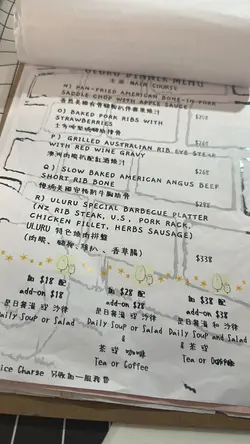 ULURU DINNER MENU
主菜 MAIN COURSE
N) PAN-FRIED AMERICAN BONE-IN PORK
SADDLE CHOP WITH APPLE SAUCE
O) BAKED PORK RIBS WITH
STRAWBERRIES
$268
P) GRILLED AUSTRALIAN RIB EYE STEAK
WITH RED WINE GRAVY
$268
澳洲肉眼扒配紅酒燒汁
Q) SLOW BAKED AMERICAN ANGUS BEEF
SHORT RIB BONE
$288
R) ULURU SPECIAL BARBECUE PLATTER
(NZ RIB STEAK, U.S. PORK RACK,
CHICKEN FILLET, HERBS SAUSAGE)
ULURU 特色燒肉拼盤
$338
加 $18 配
add-on $18
是日餐湯 或 沙律
Daily Soup or Salad
加 $28 配
add-on $28
是日餐湯 或 沙律
Daily Soup or Salad
&
茶 或 咖啡
Tea or Coffee
加 $38 配
add-on $38
是日餐湯 和 沙律
Daily Soup and Salad
& 茶 或
Tea or Coffee